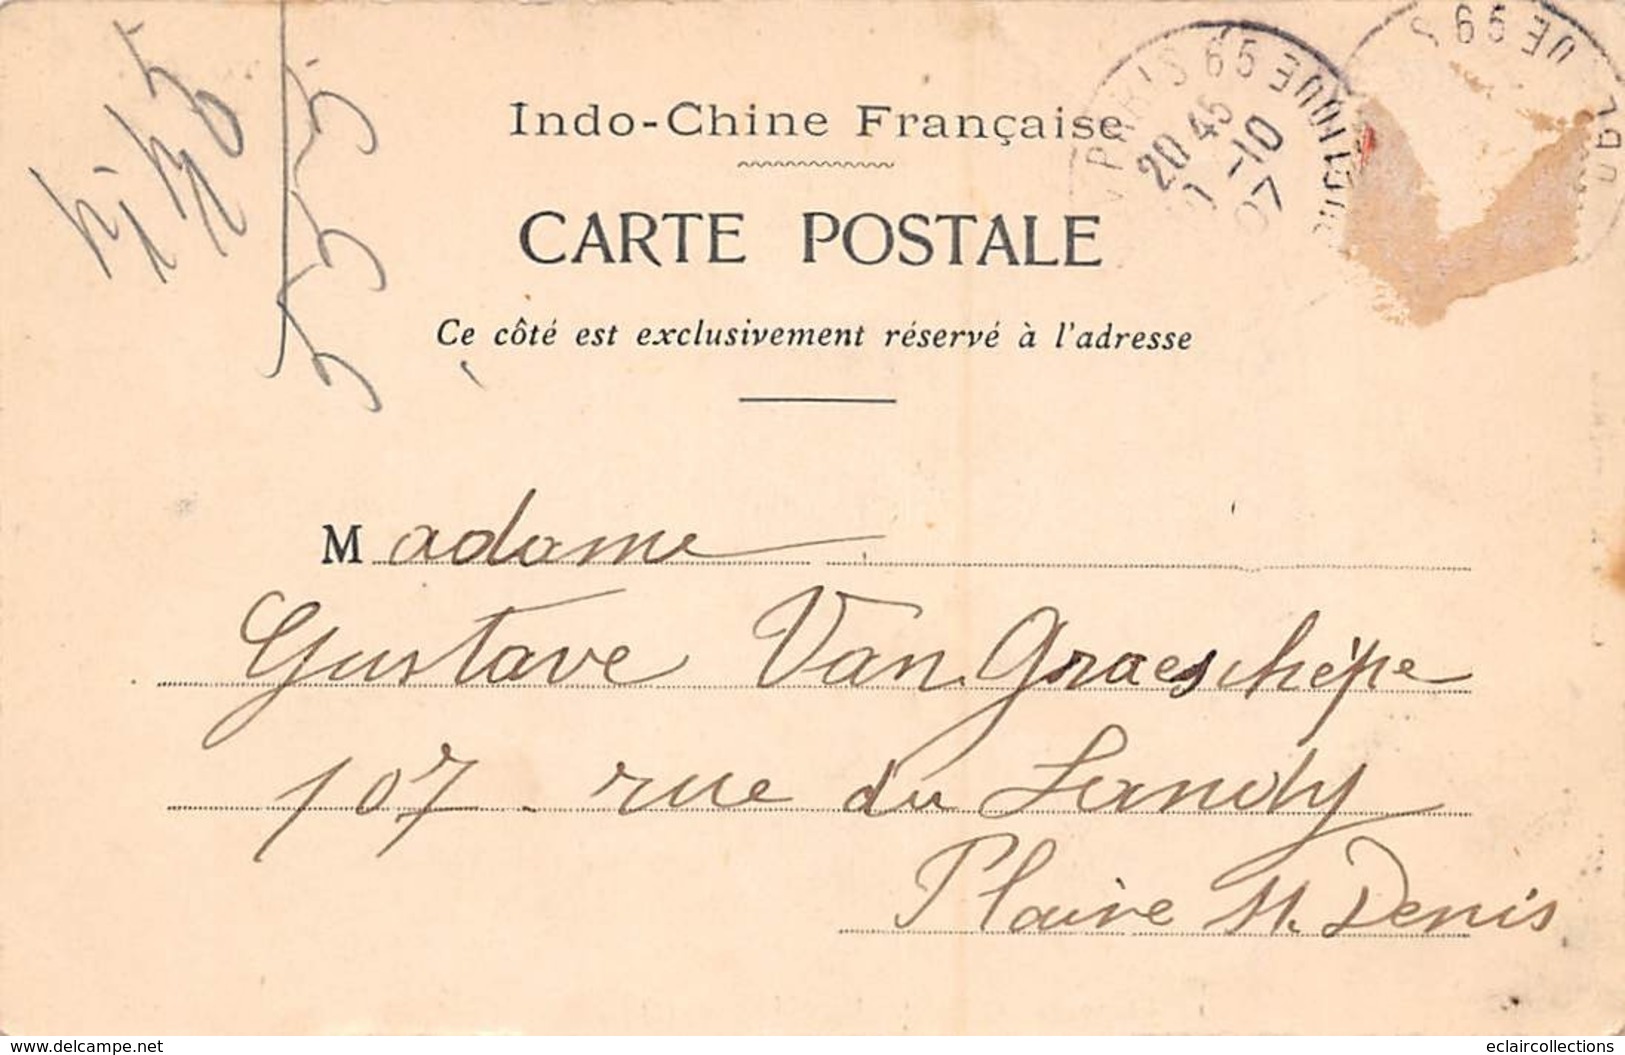 Indo-Chine Française
CARTE POSTALE
Ce côté est exclusivement réservé à l'adresse
PARIS 65
20 45
-10
07
Madame
Gustave Van Graeschépe
107 . rue du Landy
Plaine St. Denis
www.delcampe.net
eclaircollections